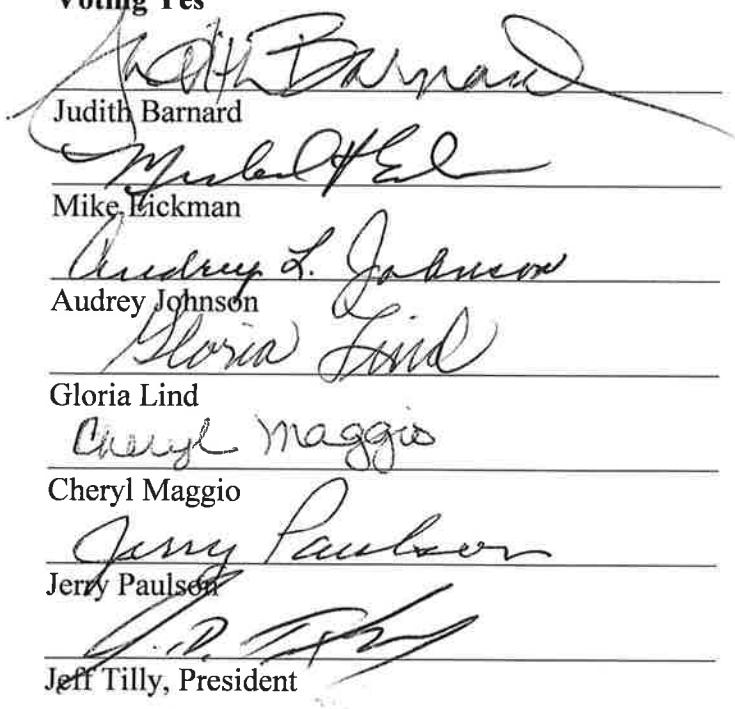 Voting Yes
Judith Barnard
Judith Barnard
Mike Eickman
Audrey L. Johnson
Audrey Johnson
Gloria Lind
Gloria Lind
Cheryl Maggio
Cheryl Maggio
Jerry Paulson
Jerry Paulson
Jeff Tilly, President